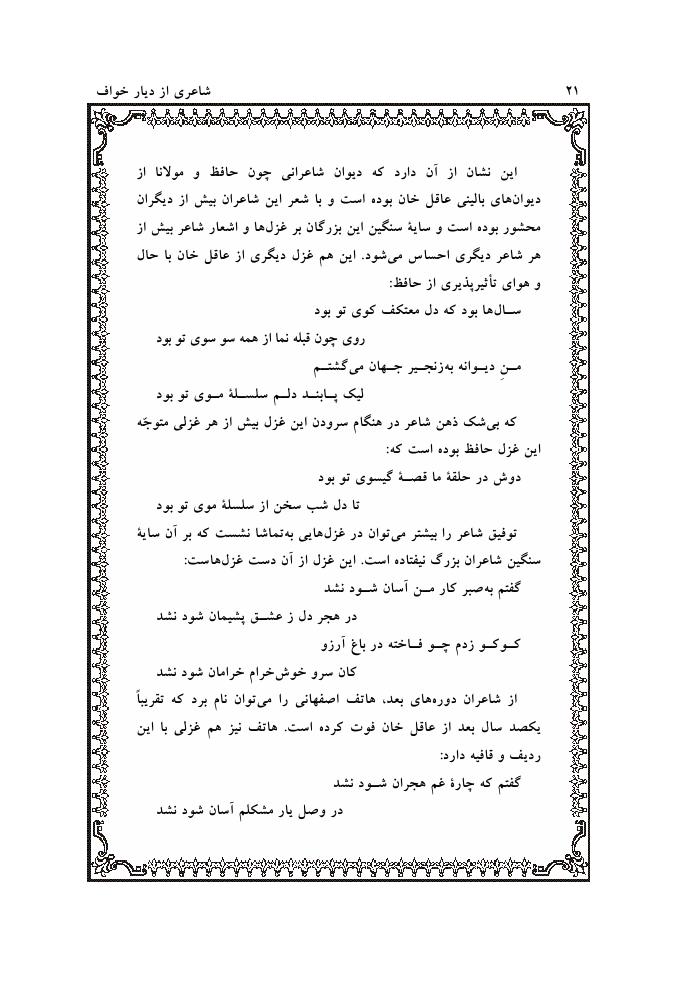 ۲۱ شاعری از دیار خواف
این نشان از آن دارد که دیوان شاعرانی چون حافظ و مولانا از
دیوان‌های بالینی عاقل خان بوده است و با شعر این شاعران بیش از دیگران
محشور بوده است و سایهٔ سنگین این بزرگان بر غزل‌ها و اشعار شاعر بیش از
هر شاعر دیگری احساس می‌شود. این هم غزل دیگری از عاقل خان با حال
و هوای تأثیرپذیری از حافظ:
ســال‌ها بود که دل معتکف کوی تو بود
روی چون قبله نما از همه سو سوی تو بود
مــنِ دیــوانه به‌زنجــیر جــهان می‌گشتــم
لیک پــابنــد دلــم سلســلهٔ مــوی تو بود
که بی‌شک ذهن شاعر در هنگام سرودن این غزل بیش از هر غزلی متوجّه
این غزل حافظ بوده است که:
دوش در حلقهٔ ما قصــهٔ گیسوی تو بود
تا دل شب سخن از سلسلهٔ موی تو بود
توفیق شاعر را بیشتر می‌توان در غزل‌هایی به‌تماشا نشست که بر آن سایهٔ
سنگین شاعران بزرگ نیفتاده است. این غزل از آن دست غزل‌هاست:
گفتم به‌صبر کار مــن آسان شــود نشد
در هجر دل ز عشــق پشیمان شود نشد
کــوکــو زدم چــو فــاخته در باغ آرزو
کان سرو خوش‌خرام خرامان شود نشد
از شاعران دوره‌های بعد، هاتف اصفهانی را می‌توان نام برد که تقریباً
یکصد سال بعد از عاقل خان فوت کرده است. هاتف نیز هم غزلی با این
ردیف و قافیه دارد:
گفتم که چارهٔ غم هجران شــود نشد
در وصل یار مشکلم آسان شود نشد